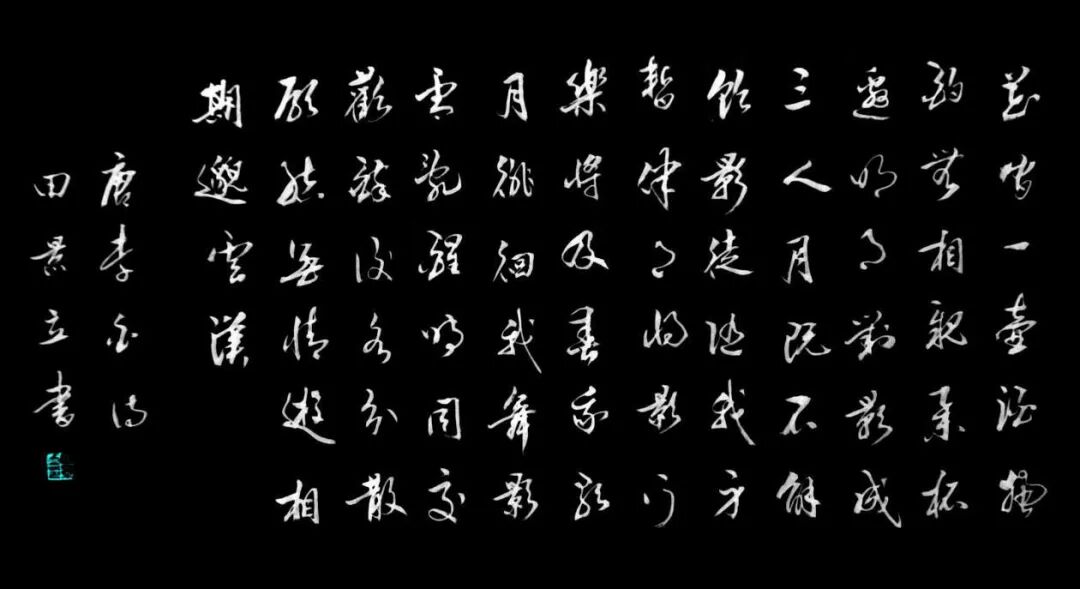 花間一壺酒獨
酌無相親舉杯
邀明月對影成
三人月既不解
飲影徒隨我身
暫伴月將影行
樂將及春我歌
月徘徊我舞影
零亂醒時同交
歡醉後各分散
願結無情遊相
期邈雲漢
唐李白詩
田景立書